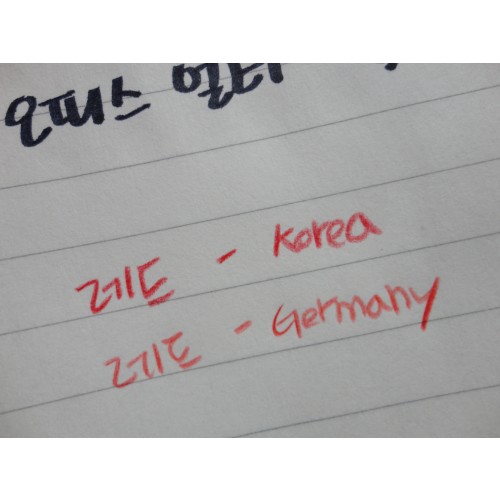 오피스 멀티
레드 - Korea
레드 - Germany